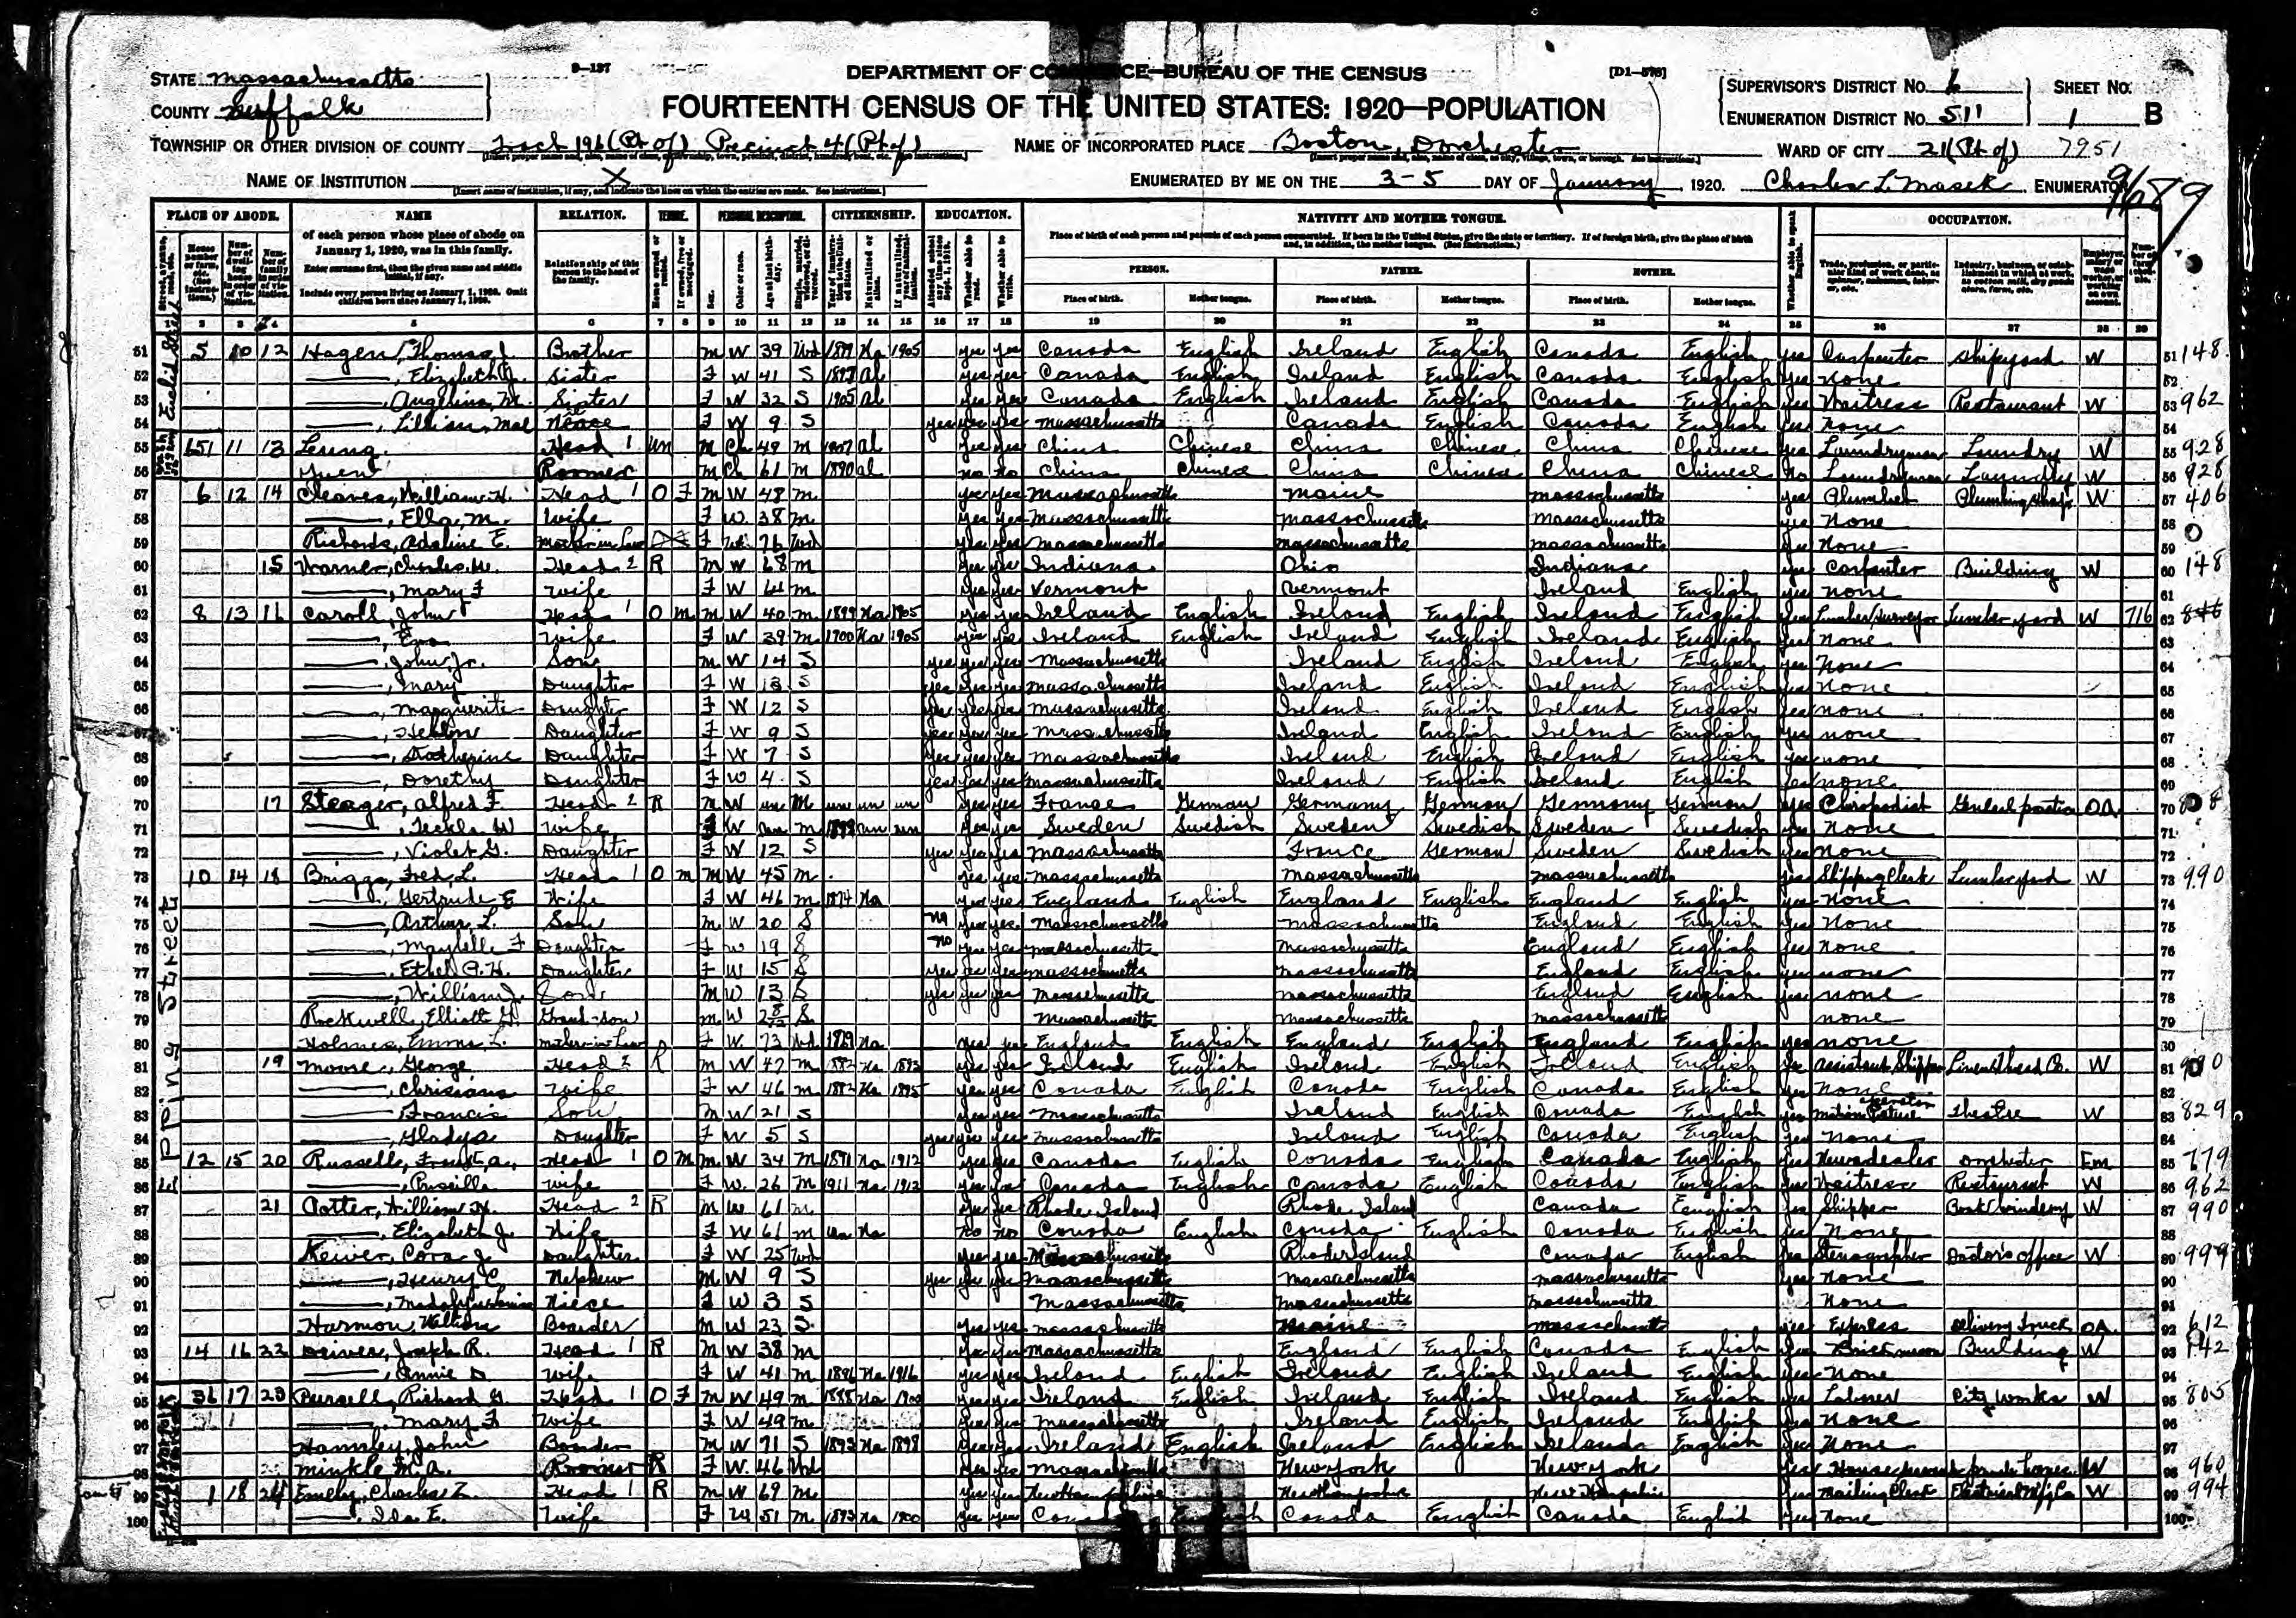 9-137
DEPARTMENT OF COMMERCE—BUREAU OF THE CENSUS
[D1-578]
STATE Massachusetts
COUNTY Suffolk
FOURTEENTH CENSUS OF THE UNITED STATES: 1920—POPULATION
SUPERVISOR'S DISTRICT No. 6
ENUMERATION DISTRICT No. 511
SHEET No. 1 B
TOWNSHIP OR OTHER DIVISION OF COUNTY Tract 196 (Pt of) Precinct 4 (Pt of)
NAME OF INCORPORATED PLACE Boston, Dorchester
WARD OF CITY 21 (Pt of) 7951
NAME OF INSTITUTION X
ENUMERATED BY ME ON THE 3-5 DAY OF January, 1920. Charles L. Masek ENUMERATOR
PLACE OF ABODE. NAME RELATION. TENURE. PERSONAL DESCRIPTION. CITIZENSHIP. EDUCATION. NATIVITY AND MOTHER TONGUE. OCCUPATION.
of each person whose place of abode on January 1, 1920, was in this family.
Enter surname first, then the given name and middle initial, if any.
Include every person living on January 1, 1920. Omit children born since January 1, 1920.
Relationship of this person to the head of the family.
Place of birth of each person and parents of each person enumerated. If born in the United States, give the state or territory. If of foreign birth, give the place of birth and, in addition, the mother tongue. (See Instructions.)
PERSON. FATHER. MOTHER.
Place of birth. Mother tongue. Place of birth. Mother tongue. Place of birth. Mother tongue.
51 5 10 12 Hagen, Thomas J. Brother M W 39 Wd 1899 Na 1905 yes yes Canada English Ireland English Canada English yes Carpenter Shipyard W 51 148
52 ——, Elizabeth J. Sister F W 41 S 1897 Al yes yes Canada English Ireland English Canada English yes None 52
53 ——, Angelina M. Sister F W 32 S 1905 Al yes yes Canada English Ireland English Canada English yes Waitress Restaurant W 53 962
54 ——, Lillian Mae Niece F W 9 S yes yes yes Massachusetts Canada English Canada English yes None 54
55 651 11 13 Leung Head 1 Un M Ch 49 M 1907 Al yes yes China Chinese China Chinese China Chinese yes Laundryman Laundry W 55 928
56 Yuent Roomer M Ch 61 M 1890 Al no no China Chinese China Chinese China Chinese No Laundryman Laundry W 56 928
57 6 12 14 Cleaves, William H. Head 1 O F M W 48 M yes yes Massachusetts Maine Massachusetts yes Plumber Plumbing shop W 57 406
58 ——, Ella M. Wife F W 38 M yes yes Massachusetts Massachusetts Massachusetts yes None 58
59 Richards, Adaline E. Mother in Law F W 76 Wd yes yes Massachusetts Massachusetts Massachusetts yes None 59
60 15 Warner, Charles W. Head 2 R M W 68 M yes yes Indiana Ohio Indiana yes Carpenter Building W 60 148
61 ——, Mary F Wife F W 64 M yes yes Vermont Vermont Ireland English yes None 61
62 8 13 16 Caroll, John Head 1 O M M W 40 M 1899 Na 1905 yes yes Ireland English Ireland English Ireland English yes Lumber Surveyor Lumber yard W 716 62
63 ——, Eva Wife F W 39 M 1900 Na 1905 yes yes Ireland English Ireland English Ireland English yes None 63
64 ——, John Jr. Son M W 14 S yes yes yes Massachusetts Ireland English Ireland English yes None 64
65 ——, Mary Daughter F W 13 S yes yes yes Massachusetts Ireland English Ireland English yes None 65
66 ——, Marguerite Daughter F W 12 S yes yes yes Massachusetts Ireland English Ireland English yes none 66
67 ——, Hellen Daughter F W 9 S yes yes yes Massachusetts Ireland English Ireland English yes none 67
68 ——, Katherine Daughter F W 7 S yes yes yes Massachusetts Ireland English Ireland English yes none 68
69 ——, Dorethy Daughter F W 4 S yes yes yes Massachusetts Ireland English Ireland English yes none 69
70 17 Steager, Alfred F. Head 2 R M W unc M unc un un yes yes France German Germany German Germany German yes Chiropodist General practice OA 70
71 ——, Teckla W Wife F W unc M 1899 un un yes yes Sweden Swedish Sweden Swedish Sweden Swedish yes None 71
72 ——, Violet G. Daughter F W 12 S yes yes yes Massachusetts France German Sweden Swedish yes None 72
73 10 14 18 Briggs, Fred L. Head 1 O M M W 45 M yes yes Massachusetts Massachusetts Massachusetts yes Shipping Clerk Lumber yard W 73 990
74 ——, Gertrude E Wife F W 46 M 1874 Na yes yes England English England English England English yes None 74
75 ——, Arthur L. Son M W 20 S No yes yes Massachusetts Massachusetts England English yes None 75
76 ——, Maybelle F Daughter F W 19 S No yes yes Massachusetts Massachusetts England English yes none 76
77 ——, Ethel A. H. Daughter F W 15 S yes yes yes Massachusetts Massachusetts England English yes none 77
78 ——, William J. Son M W 13 S yes yes yes Massachusetts Massachusetts England English yes none 78
79 Rockwell, Elliott G. Grand-son M W 2 8/12 S Massachusetts Massachusetts Massachusetts none 79
80 Holmes, Emma L. Mother-in-Law F W 73 Wd 1869 Na yes yes England English England English England English yes none 80
81 19 Moore, George Head 2 R M W 47 M 1882 Na 1893 yes yes Ireland English Ireland English Ireland English yes Assistant Shipper Linen thread Co. W 81
82 ——, Christiana Wife F W 46 M 1872 Na 1895 yes yes Canada English Canada English Canada English yes None 82
83 ——, Francis Son M W 21 S yes yes Massachusetts Ireland English Canada English yes Motion Picture operator Theatre W 83 829
84 ——, Gladys Daughter F W 5 S yes yes yes Massachusetts Ireland English Canada English yes None 84
85 12 15 20 Russell, Frank A. Head 1 O M M W 34 M 1891 Na 1912 yes yes Canada English Canada English Canada English yes Newsdealer Dorchester Em 85 779
86 ——, Priscilla Wife F W 26 M 1911 Na 1912 yes yes Canada English Canada English Canada English yes Waitress Restaurant W 86 962
87 21 Potter, William H. Head 2 R M W 61 M yes yes Rhode Island Rhode Island Canada English yes Shipper Book bindery W 87 990
88 ——, Elizabeth J. Wife F W 61 M un Na no no Canada English Canada English Canada English yes None 88
89 Keiver, Cora J. Daughter F W 25 Wd yes yes Massachusetts Rhode Island Canada English yes Stenographer Doctor's office W 89 999
90 ——, Henry C Nephew M W 9 S yes yes yes Massachusetts Massachusetts Massachusetts yes None 90
91 ——, Louise Niece F W 3 S Massachusetts Massachusetts Massachusetts None 91
92 Harmon, William Boarder M W 23 S yes yes Massachusetts Maine Massachusetts yes Express Delivery Truck OA 92 612
93 14 16 22 Driver, Joseph R. Head 1 R M W 38 M yes yes Massachusetts England English Canada English yes Brick mason Building W 93 142
94 ——, Annie D Wife F W 41 M 1896 Na 1916 yes yes Ireland English Ireland English Ireland English yes None 94
95 36 17 23 Pursell, Richard G. Head 1 O F M W 49 M 1888 Na 1900 yes yes Ireland English Ireland English Ireland English yes Laborer City Works W 95 805
96 ——, Mary F Wife F W 49 M yes yes Massachusetts Ireland English Ireland English yes None 96
97 Hannley, John Boarder M W 71 S 1893 Na 1898 yes yes Ireland English Ireland English Ireland English yes None 97
98 Minkle M. A. Roomer R F W 46 Wd yes yes Massachusetts New York New York yes W 98 960
99 1 18 24 Emelly, Charles Z. Head 1 R M W 69 M yes yes New Hampshire New Hampshire New Hampshire yes Mailing Clerk Electrical Mfg Co W 99 994
100 ——, Ida E. Wife F W 51 M 1893 Na 1900 yes yes Canada English Canada English Canada English yes None 100
Epping Street